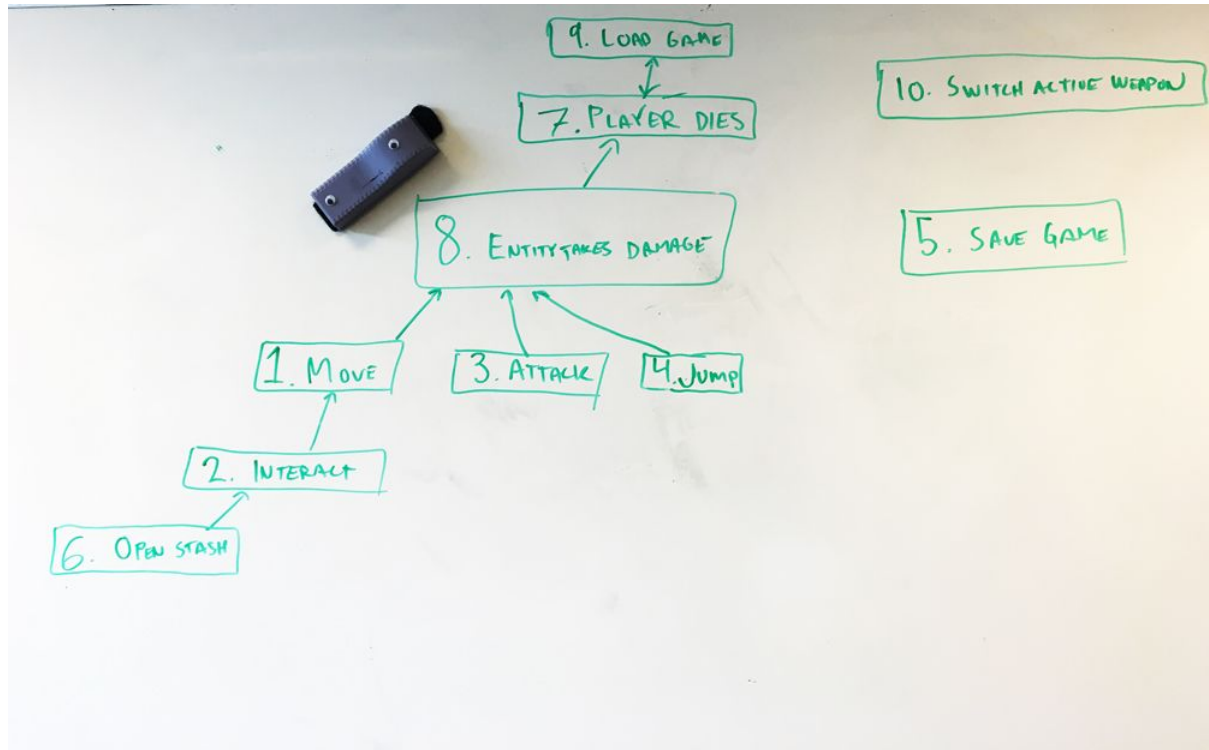 9. LOAD GAME
7. PLAYER DIES
10. SWITCH ACTIVE WEAPON
8. ENTITY TAKES DAMAGE
5. SAVE GAME
1. MOVE
3. ATTACK
4. JUMP
2. INTERACT
6. OPEN STASH